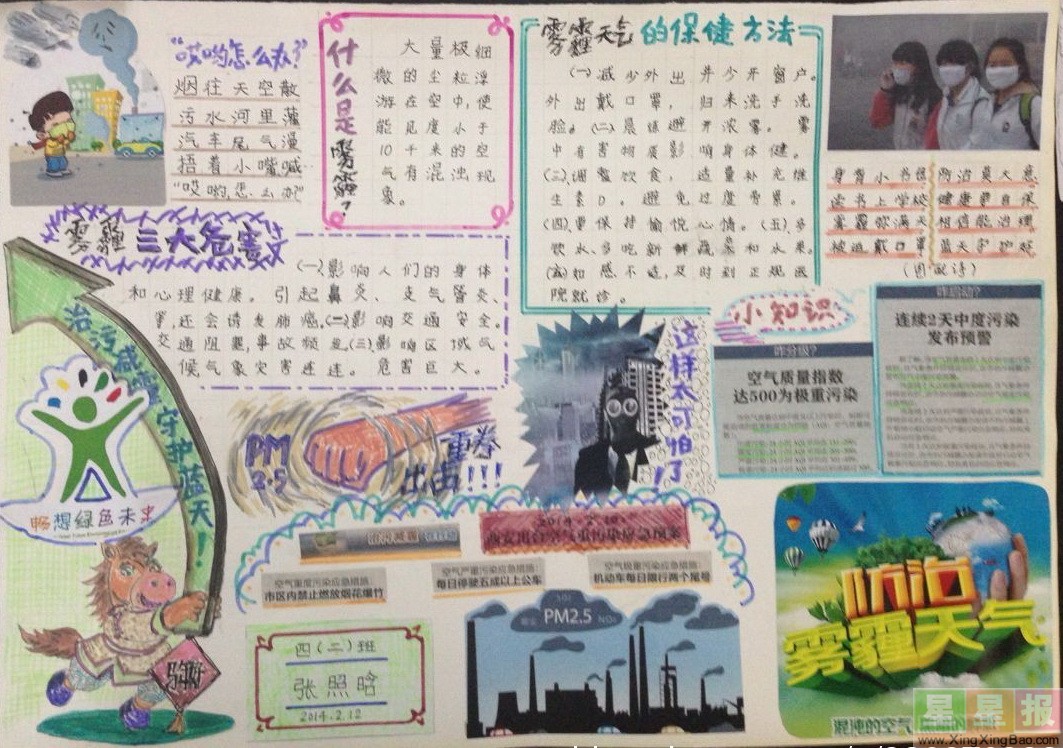 “哎哟怎么办?”
烟往天空散
污水河里蓬
汽车尾气漫
捂着小嘴喊
“哎哟,怎么办”
什么是雾霾?
大量极细
微的尘粒浮
游在空中,使
能见度小于
10千米的空
气有混浊现
象。
雾霾天气的保健方法
(一)减少外出 并少开窗户。
外出戴口罩, 归来洗手洗
脸。(二)晨练避开浓雾。雾
中有害物质影响身体健。
(三)调整饮食, 适量补充维
生素D。避免过度劳累。
(四)要保持愉悦心情。(五)多
饮水、多吃新鲜蔬菜和水果。
如感不适,及时到正规医
院就诊。
身背小书包
读书上学校
雾霾弥满天
被迫戴口罩
防治莫大意
健康要自保
相信能治理
蓝天
雾霾三大危害
(一)影响人们的身体
和心理健康。引起鼻炎、支气管炎、
还会诱发肺癌,(二)影响交通安全。
交通阻塞,事故频出,(三)影响区域气
候气象灾害连连。危害巨大。
治污减霾 守护蓝天!
畅想绿色未来
PM
2.5
重拳
出击!!!
这样太可怕了!
小知识
咋分级?
空气质量指数
达500为极重污染
咋启动?
连续2天中度污染
发布预警
2014.2.10
西安出台空气重污染应急预案
空气重度污染应急措施:
市区内禁止燃放烟花爆竹
空气严重污染应急措施:
每日停驶五成以上公车
空气极重污染应急措施:
机动车每日限行两个尾号
四(二)班
张照晗
2014.2.12
PM2.5
NOx
防治
雾霾天气
混沌的空气
星星报
www.XingXingBao.com